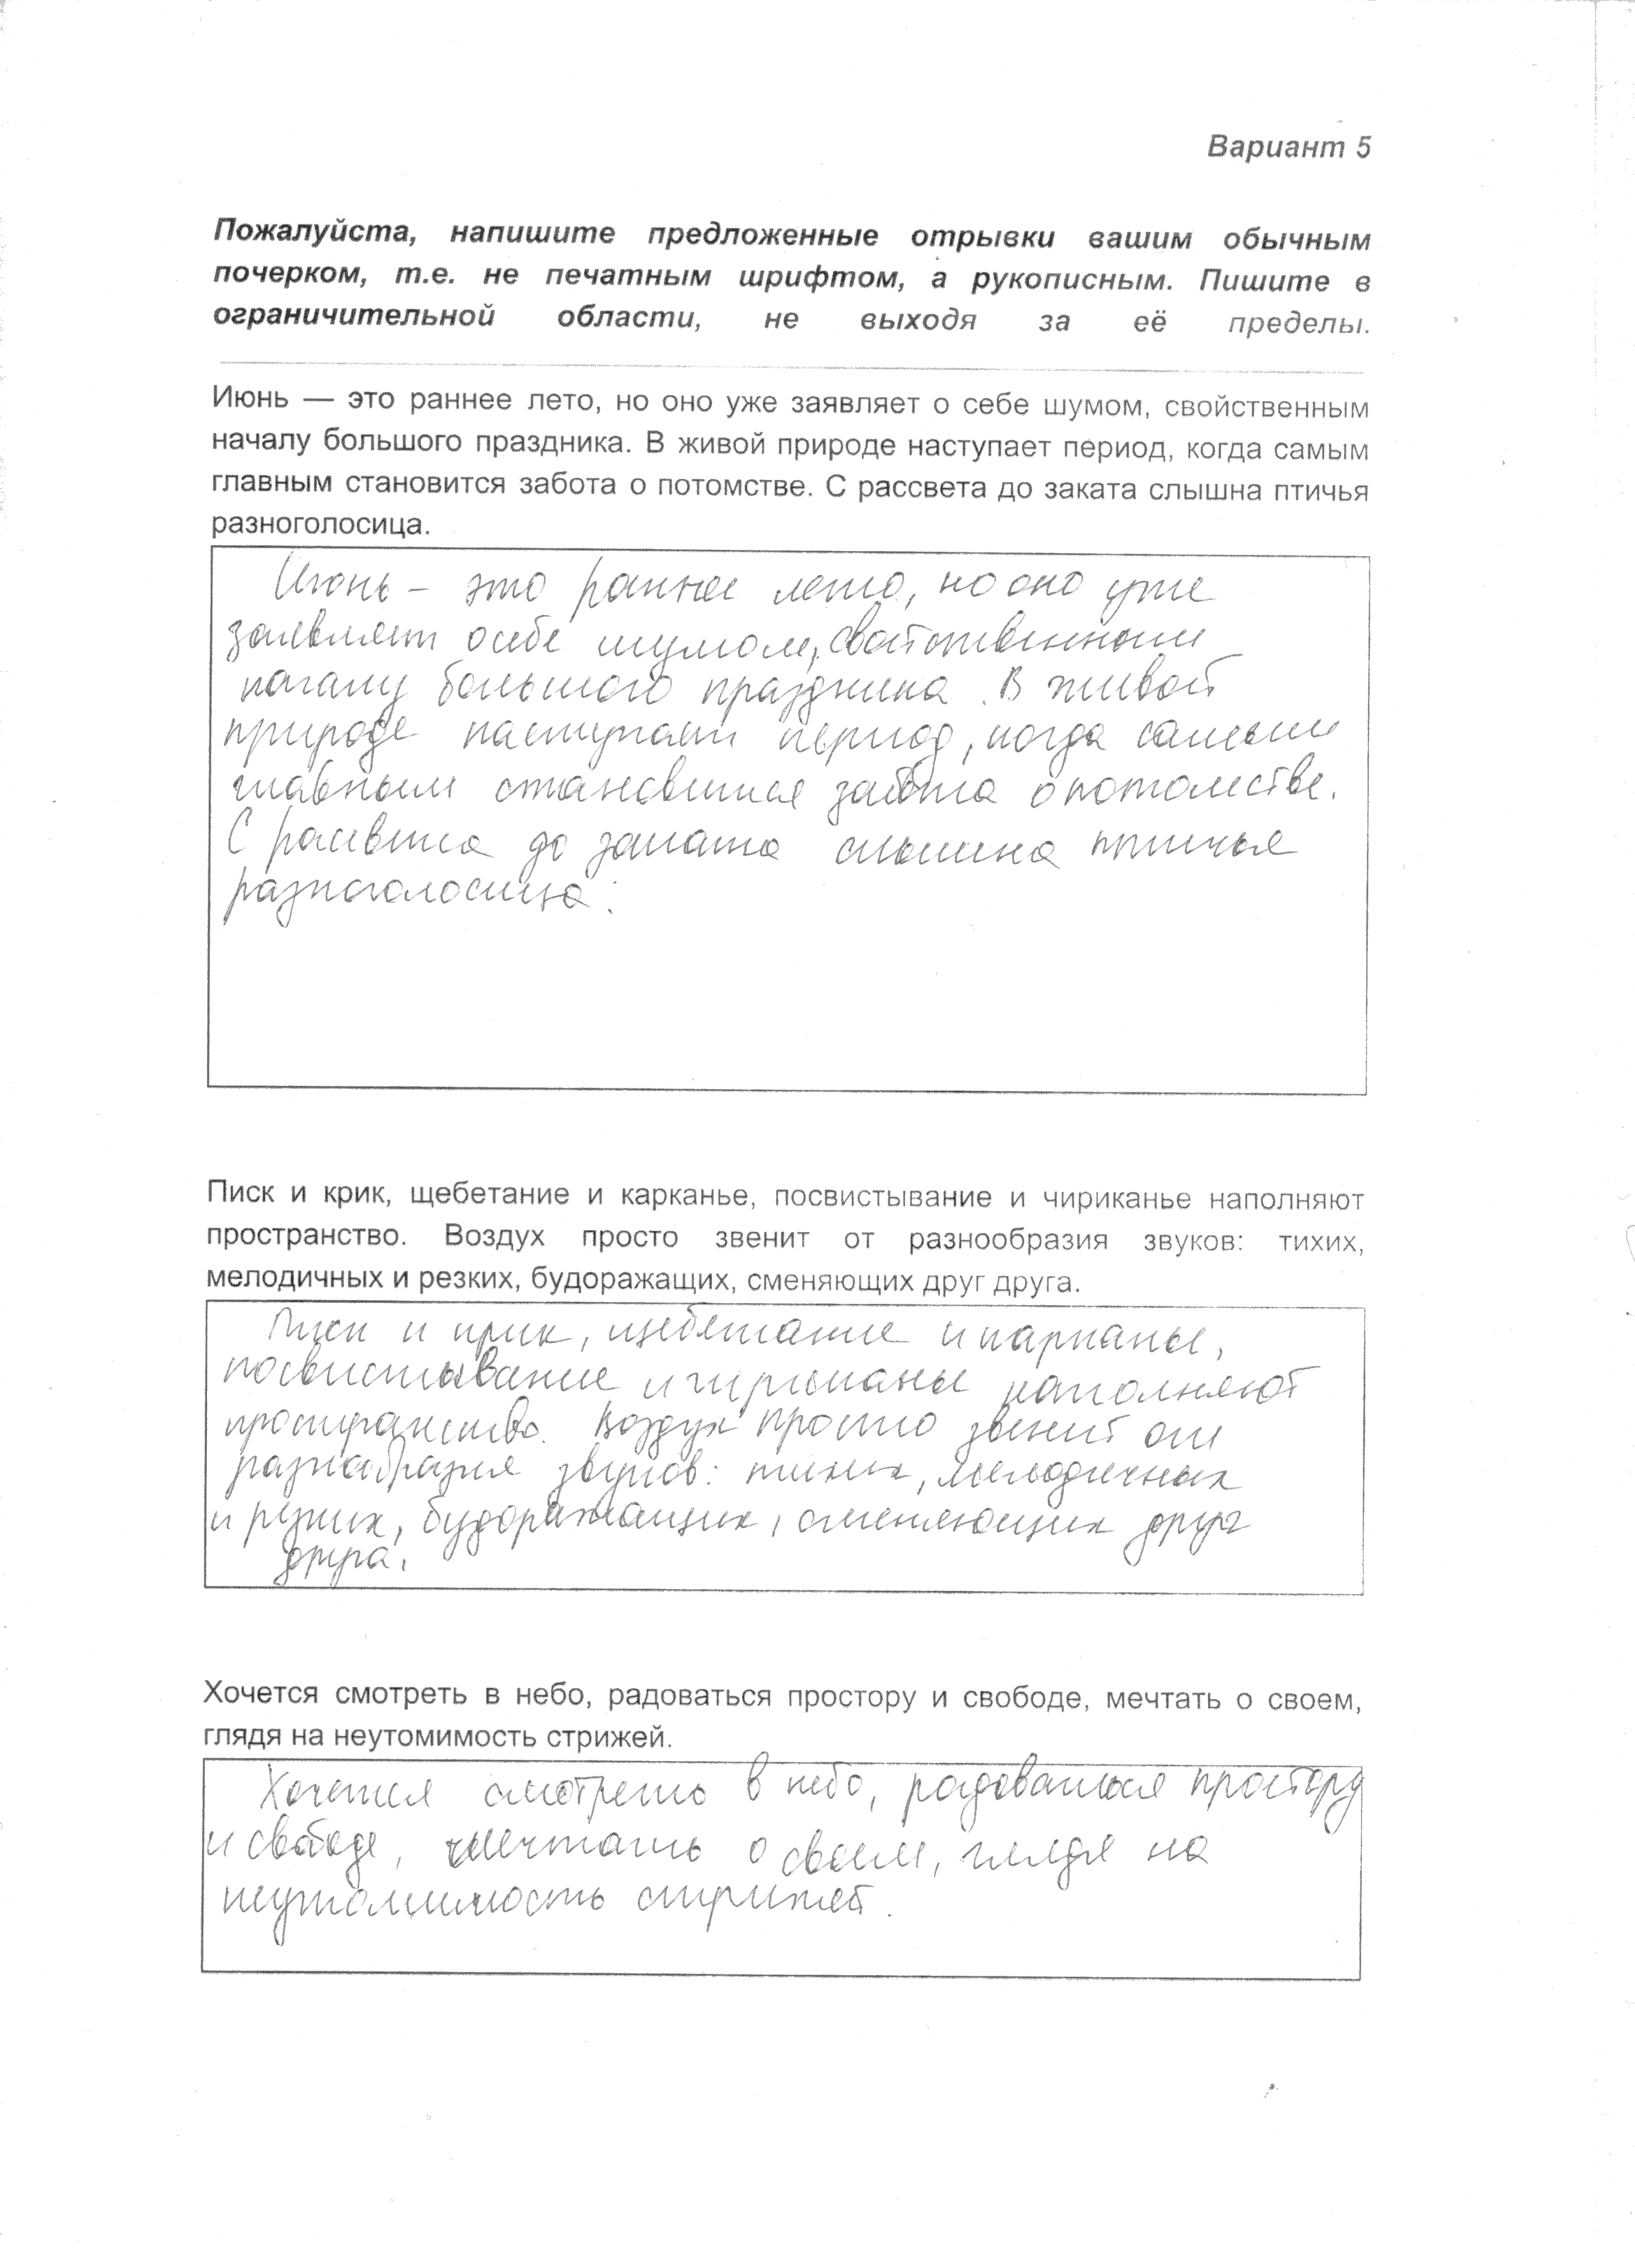 Вариант 5
Пожалуйста, напишите предложенные отрывки вашим обычным
почерком, т.е. не печатным шрифтом, а рукописным. Пишите в
ограничительной области, не выходя за её пределы.
Июнь — это раннее лето, но оно уже заявляет о себе шумом, свойственным
началу большого праздника. В живой природе наступает период, когда самым
главным становится забота о потомстве. С рассвета до заката слышна птичья
разноголосица.
Июнь – это раннее лето, но оно уже
заявляет о себе шумом, свойственным
началу большого праздника. В живой
природе наступает период, когда самым
главным становится забота о потомстве.
С рассвета до заката слышна птичья
разноголосица.
Писк и крик, щебетание и карканье, посвистывание и чириканье наполняют
пространство. Воздух просто звенит от разнообразия звуков: тихих,
мелодичных и резких, будоражащих, сменяющих друг друга.
Писк и крик, щебетание и карканье,
посвистывание и чириканье наполняют
пространство. Воздух просто звенит от
разнообразия звуков: тихих, мелодичных
и резких, будоражащих, сменяющих друг
друга.
Хочется смотреть в небо, радоваться простору и свободе, мечтать о своем,
глядя на неутомимость стрижей.
Хочется смотреть в небо, радоваться простору
и свободе, мечтать о своем, глядя на
неутомимость стрижей.